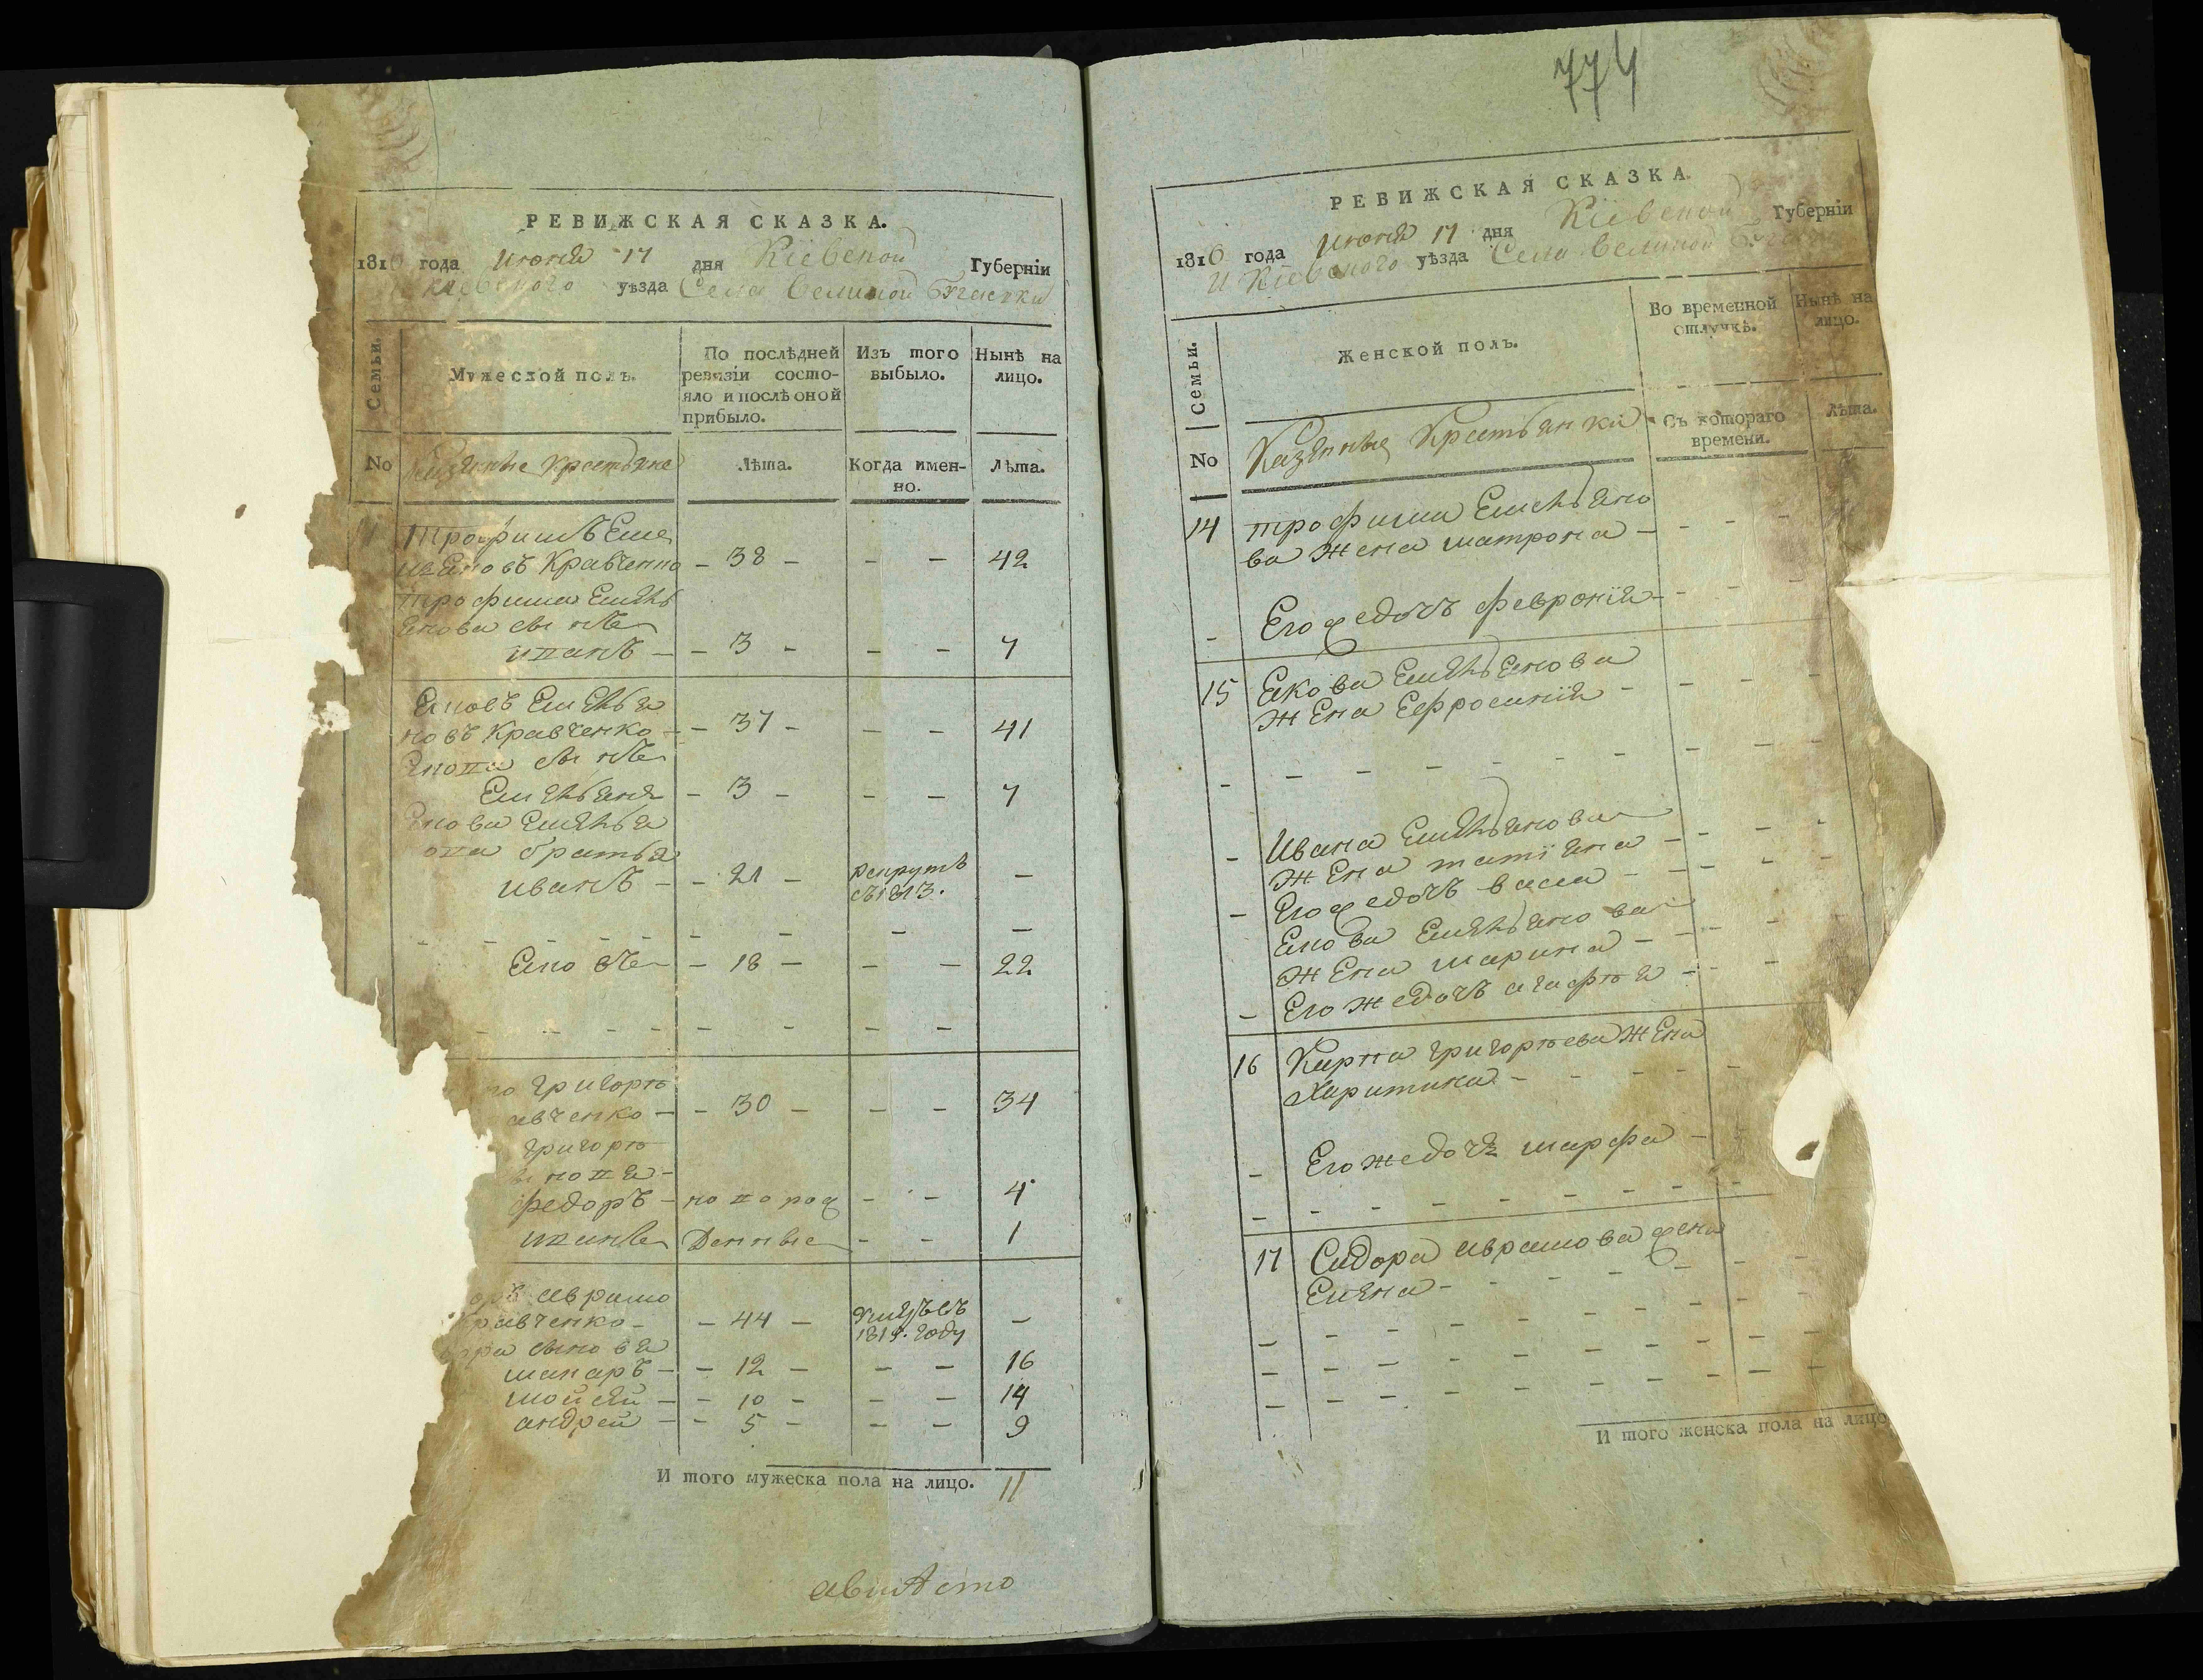 774
РЕВИЖСКАЯ СКАЗКА.
181 года июня 17 дня Кіевской Губерніи
Кіевского уѣзда Села Великой Бугаевки
Семьи.
Мужеской полъ.
По послѣдней ревизіи состо-
яло и послѣ оной
прибыло.
Изъ того
выбыло.
Нынѣ на
лицо.
No
Казенные Крестьяне
Лѣта.
Когда имен-
но.
Лѣта.
Трофимъ Еме
ляновъ Кравченко - 38 - - - 42
Трофима Емель
янова сынъ
иванъ - - 3 - - - 7
Яковъ Емелья
новъ Кравченко - - 37 - - - 41
Якова сынъ
Емельянъ - 3 - - - 7
Якова Емелья
ова братья
иванъ - - 21 - рекрутъ
съ 1813. -
Яковъ - 18 - - - 22
григорь
авченко - - 30 - - - 34
григорь
федоръ - новорож - - 4
иванъ Денные - - 1
оръ аврамо
Кравченко - - 44 - умре въ
181 . году -
ора сыновя
макаръ - - 12 - - - 16
мойсей - - 10 - - - 14
андрей - - 5 - - - 9
И того мужеска пола на лицо. 11
РЕВИЖСКАЯ СКАЗКА.
1816 года июня 17 дня Кіевской Губерніи
И Кіевского уѣзда Села Великой
Семьи.
Женской полъ.
Во временной
отлучкѣ.
Нынѣ на
лицо.
No
Казенные Крестьянки
Съ котораго
времени.
Лѣта.
14 трофима Емельяно
ва жена матрона -
- Его ж едочъ феврония -
15 Якова Емельянова
жена Ефросиния -
- Ивана Емельянова
жена татияна -
- Его ж едочъ васса -
Якова Емельянова
жена марина -
- Его ж едочъ агафья -
16 Карпа григорьева жена
Харитина -
- Его же дочь марфа -
17 Сидора аврамова жена
Елена -
И того женска пола на лицо